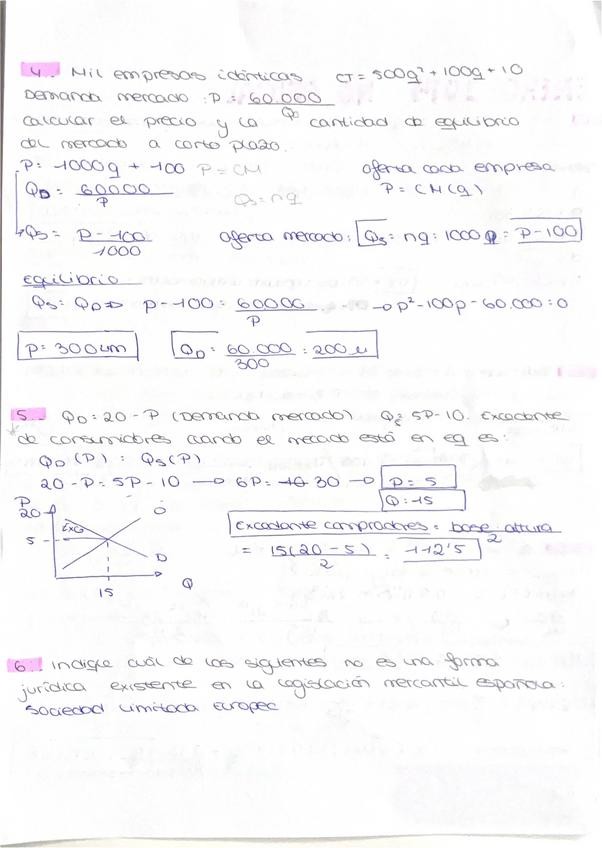 4. Mil empresas idénticas CT = 500q² + 100q + 10
Demanda mercado: P = 60.000 / QD
calcular el precio y la cantidad de equilibrio
del mercado a corto plazo.
P = 1000q + 100 P = CM oferta cada empresa
QD = 60000 / P Qs = nq P = CM(q)
Qs = P - 100 / 1000 oferta mercado: Qs = nq = 1000 q = P - 100
equilibrio
Qs = QD ⇒ P - 100 = 60000 / P → p² - 100p - 60.000 = 0
P = 300um QD = 60.000 / 300 = 200 u
5. QD = 20 - P (Demanda mercado) Qs = 5P - 10. Excedente
de consumidores cuando el mercado está en eq es:
QD (P) = Qs (P)
20 - P = 5P - 10 → 6P = 30 → P = 5
Q = 15
P
20
O
Exc
5
D
15
Q
Excedente compradores = base · altura / 2
= 15(20 - 5) / 2 = 112'5
6. Indique cuál de las siguientes no es una forma
jurídica existente en la legislación mercantil española:
Sociedad Limitada Europec